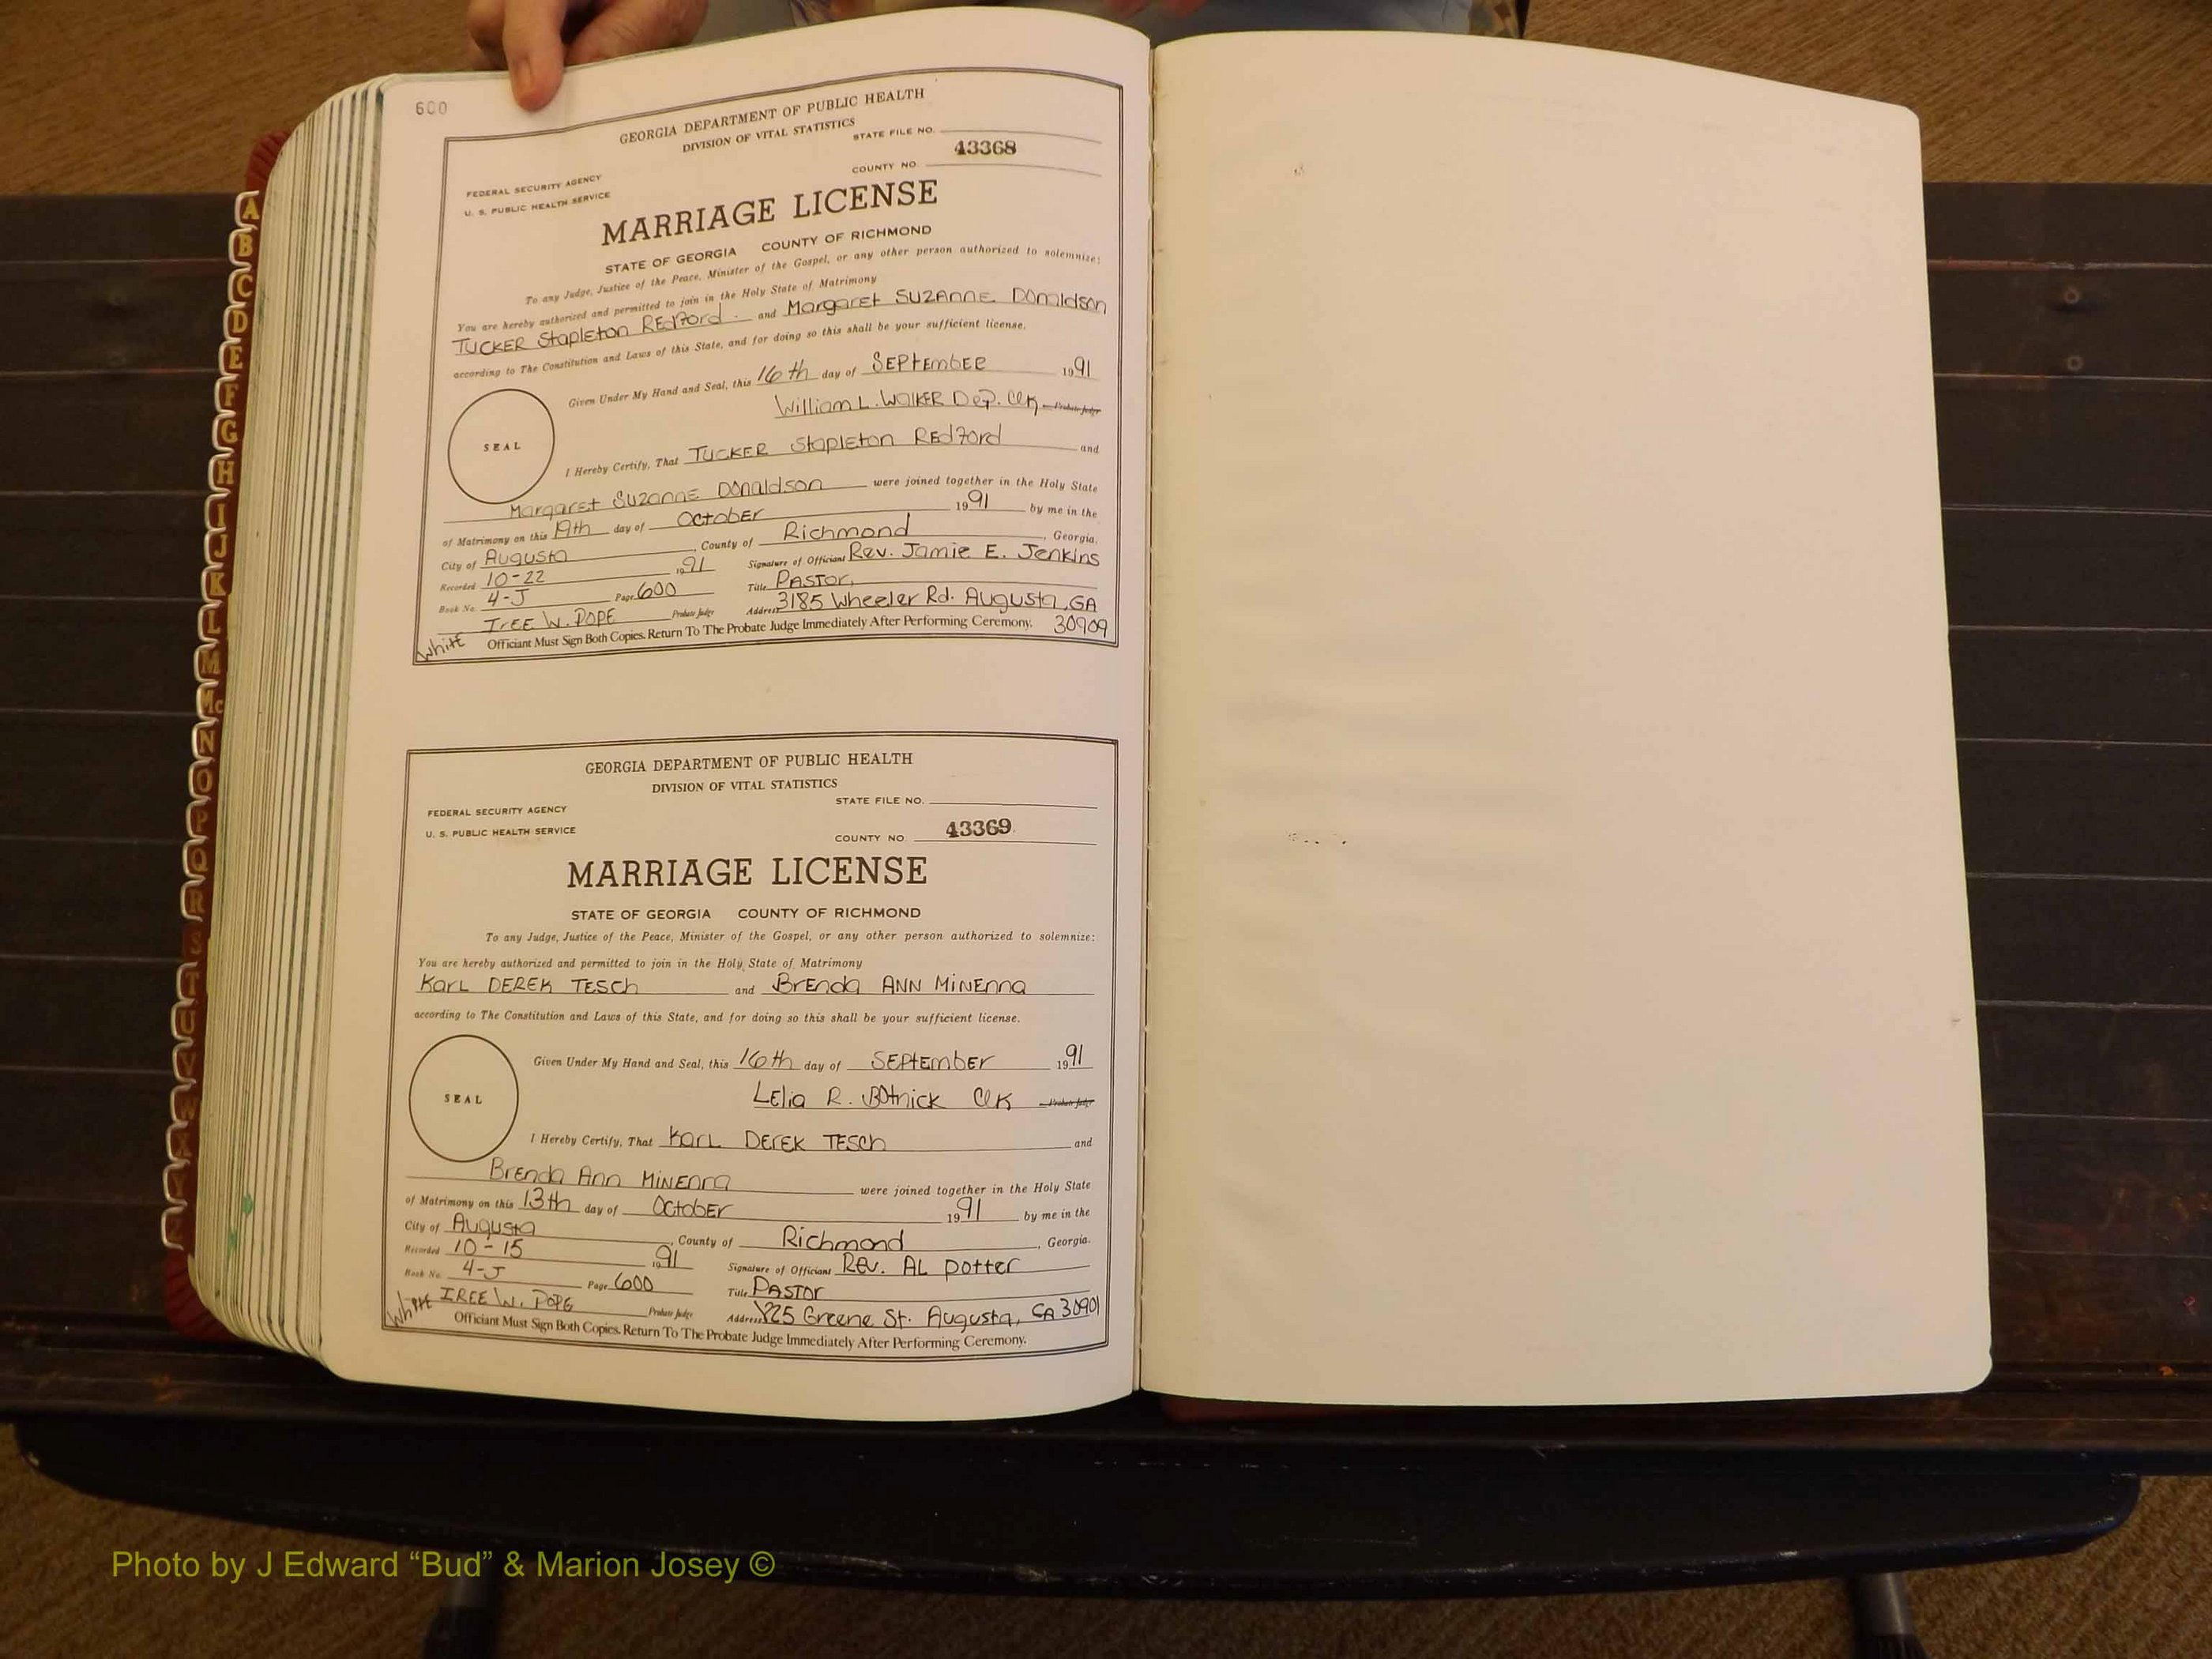 600
GEORGIA DEPARTMENT OF PUBLIC HEALTH
DIVISION OF VITAL STATISTICS
STATE FILE NO.
43368
COUNTY NO
FEDERAL SECURITY AGENCY
U. S. PUBLIC HEALTH SERVICE
MARRIAGE LICENSE
STATE OF GEORGIA COUNTY OF RICHMOND
To any Judge, Justice of the Peace, Minister of the Gospel, or any other person authorized to solemnize:
You are hereby authorized and permitted to join in the Holy State of Matrimony
TUCKER Stapleton REdford and Margaret SUZAnne Donaldson
according to The Constitution and Laws of this State, and for doing so this shall be your sufficient license.
Given Under My Hand and Seal, this 16th day of SEPtEmbEr 1991
William L. WalkER Dep. Clk Probate Judge
SEAL
I Hereby Certify, That TUCKER StaplEton REdford and
MargarEt SUzanne Donaldson were joined together in the Holy State
of Matrimony on this 19th day of OctobEr 1991 by me in the
City of Augusta, County of Richmond, Georgia.
Recorded 10-22 1991 Signature of Officiant Rev. Jamie E. Jenkins
Book No. 4-J Page 600 Title PASTOR,
IrEE W. POPE Probate Judge Address 3185 Wheeler Rd. Augusta, GA
White Officiant Must Sign Both Copies. Return To The Probate Judge Immediately After Performing Ceremony. 30909
GEORGIA DEPARTMENT OF PUBLIC HEALTH
DIVISION OF VITAL STATISTICS
STATE FILE NO.
FEDERAL SECURITY AGENCY
U. S. PUBLIC HEALTH SERVICE
COUNTY NO 43369
MARRIAGE LICENSE
STATE OF GEORGIA COUNTY OF RICHMOND
To any Judge, Justice of the Peace, Minister of the Gospel, or any other person authorized to solemnize:
You are hereby authorized and permitted to join in the Holy State of Matrimony
KarL DEREK TESch and BrEnda ANN MiNEnna
according to The Constitution and Laws of this State, and for doing so this shall be your sufficient license.
Given Under My Hand and Seal, this 16th day of SEPtEmbEr 1991
LElia R. BOtnick ClK Probate Judge
SEAL
I Hereby Certify, That KarL DErEK TESch and
BrEnda Ann MiNEnna were joined together in the Holy State
of Matrimony on this 13th day of OctobEr 1991 by me in the
City of Augusta, County of Richmond, Georgia.
Recorded 10-15 1991 Signature of Officiant REv. AL Potter
Book No. 4-J Page 600 Title PASTOR
White IREE W. POPE Probate Judge Address 825 Greene St. Augusta, GA 30901
Officiant Must Sign Both Copies. Return To The Probate Judge Immediately After Performing Ceremony.
A
B
C
D
E
F
G
H
I
J
K
L
M
Mc
N
O
P
Q
R
S
T
U
V
W
X
Y
Z
Photo by J Edward “Bud” & Marion Josey ©